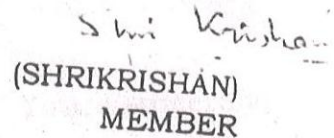 Shri Krishan
(SHRIKRISHAN)
MEMBER